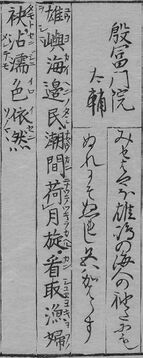 殷冨門院
大輔
みせはやな雄嶋の海人の袖たにも
ぬれにそぬれし色はかはらす
雄嶼海邊民潮間荷月旋看取漁婦
袂沾濡色依然